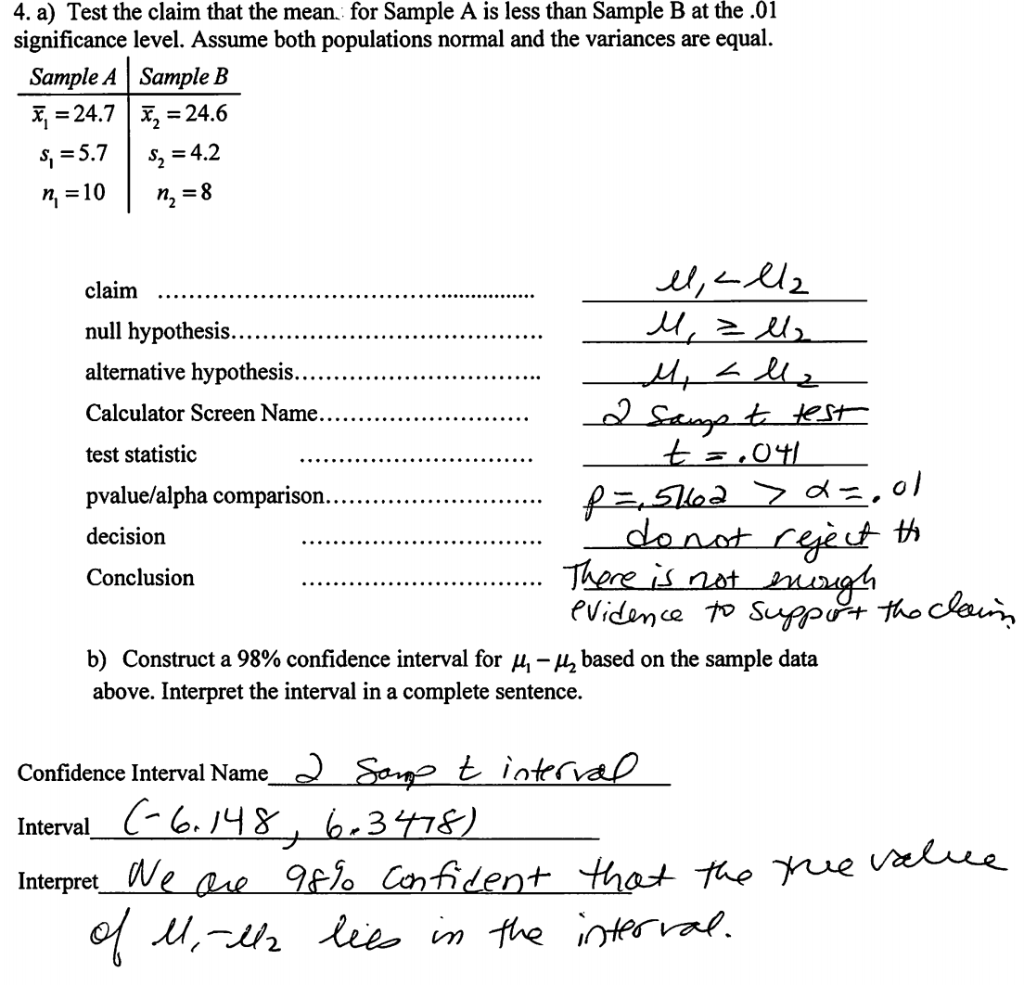 4. a) Test the claim that the mean for Sample A is less than Sample B at the .01
significance level. Assume both populations normal and the variances are equal.
Sample A Sample B
x̄₁ = 24.7 x̄₂ = 24.6
s₁ = 5.7 s₂ = 4.2
n₁ = 10 n₂ = 8
claim .......... μ₁ < μ₂
null hypothesis.......... μ₁ ≥ μ₂
alternative hypothesis.......... μ₁ < μ₂
Calculator Screen Name.......... 2 Samp t test
test statistic .......... t = .041
pvalue/alpha comparison.......... p = .5162 > α = .01
decision .......... do not reject th
Conclusion .......... There is not enough
evidence to support the claim
b) Construct a 98% confidence interval for μ₁ − μ₂ based on the sample data
above. Interpret the interval in a complete sentence.
Confidence Interval Name 2 Samp t interval
Interval (-6.148, 6.3478)
Interpret We are 98% Confident that the true value
of μ₁-μ₂ lies in the interval.